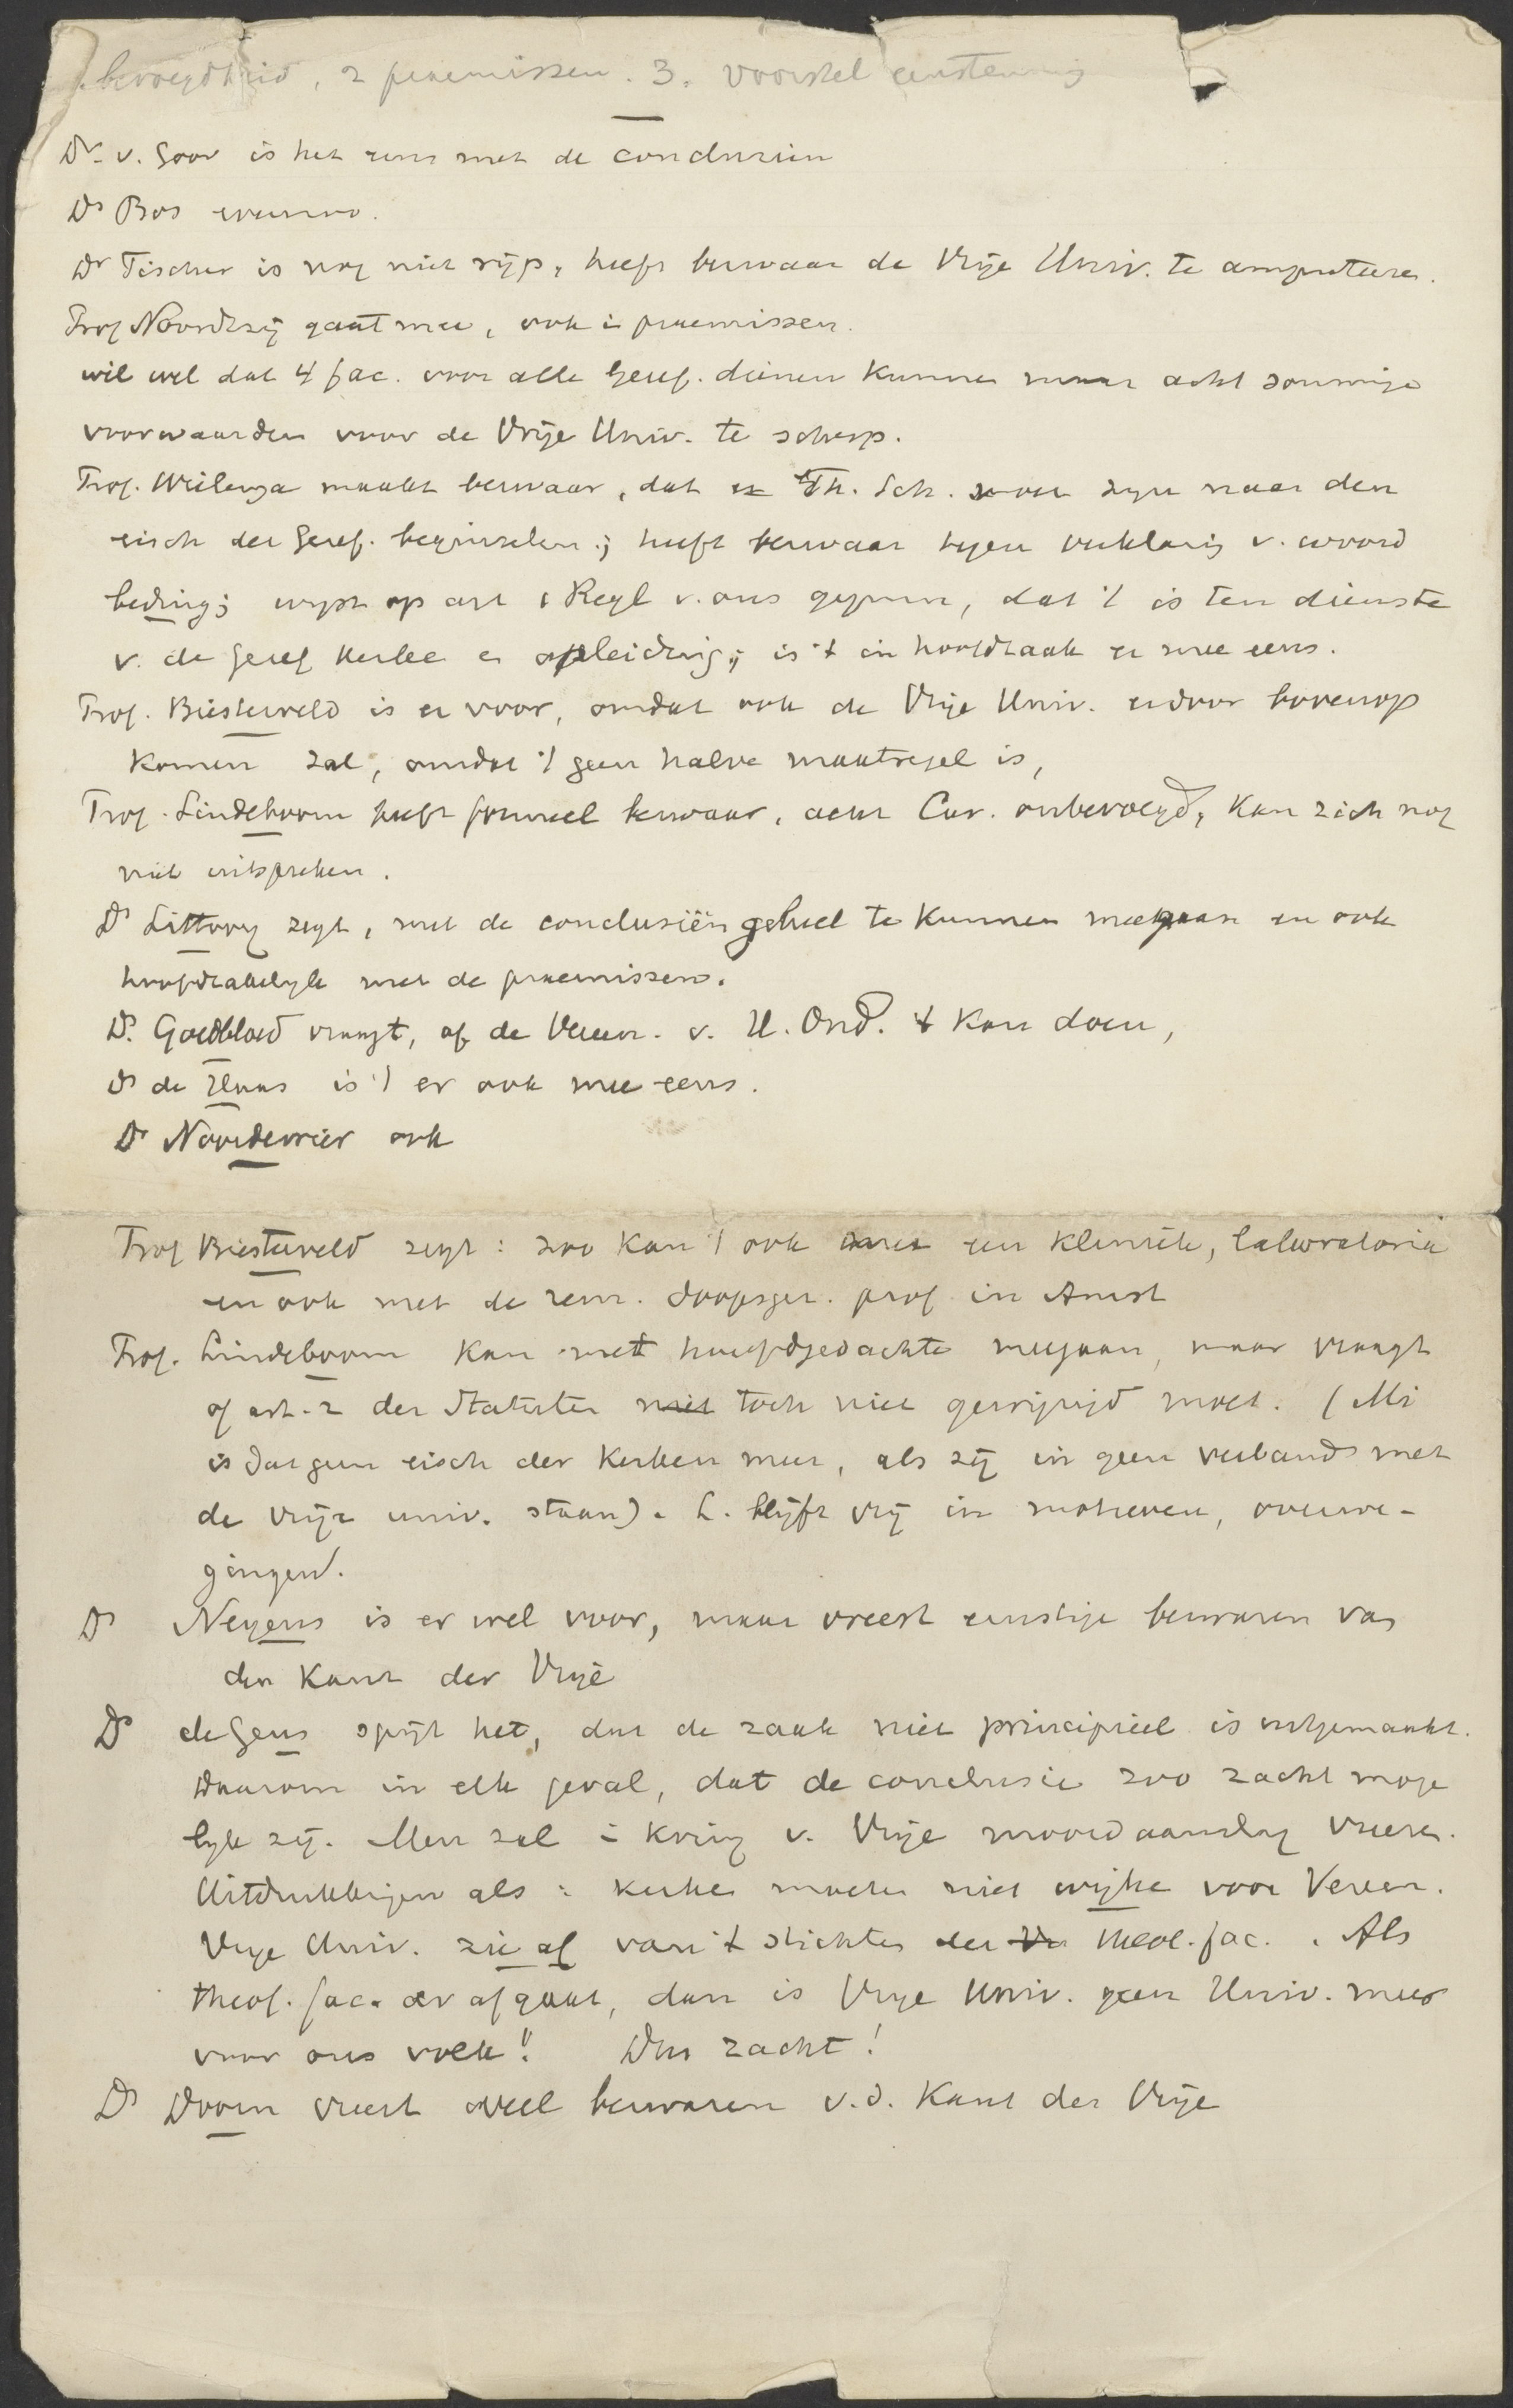 bevoegdheid, 2 praemissen. 3. voorstel eenstemmig
Dr. v. Goor is het eens met de conclusiën
Ds Bos evenzoo.
Dr Tischer is nog niet rijp, heeft bezwaar de Vrije Univ. te amputeren.
Prof Noordtzij gaat mee, ook in praemissen.
wil wel dat 4 fac. voor alle Geref. dienen kunnen maar acht sommige
voorwaarden voor de Vrije Univ. te scherp.
Prof. Wielenga maakt bezwaar, dat Th. Sch. zou zijn naar den
eisch der Geref. beginselen; heeft bezwaar tegen verklaring v. woord
beding; wijst op art 1 Regl v. ons gymn, dat 't is ten dienste
v. de Geref kerken en opleiding; is 't in hoofdzaak er mee eens.
Prof. Biesterveld is er voor, omdat ook de Vrije Univ. erdoor bovenop
komen zal, omdat 't geen halve maatregel is,
Prof. Lindeboom heeft formeel bezwaar, acht Cur. onbevoegd, kan zich nog
niet uitspreken.
Ds Littooy zegt, met de conclusiën geheel te kunnen meegaan en ook
hoofdzakelijk met de praemissen.
Ds. Goedbloed vraagt, of de Vereen. v. H. Ond. 't kan doen,
Ds de Haas is 't er ook mee eens.
Ds Noordewier ook
Prof Biesterveld zegt: zoo kan 't ook met een kliniek, laboratoria
en ook met de rem. doopsgez. prof in Amst
Prof. Lindeboom kan met hoofdgedachte meegaan, maar vraagt
of art. 2 der Statuten niet toch niet gewijzigd moet. (Mi
is dat geen eisch der kerken meer, als zij in geen verband met
de vrije univ. staan). L. blijft vrij in motieven, overwe-
gingen.
Ds Neyens is er wel voor, maar vreest ernstige bezwaren van
den kant der Vrije
Ds de Geus spijt het, dat de zaak niet principieel is uitgemaakt.
Daarom in elk geval, dat de conclusie zoo zacht moge
lijk zij. Men zal in kring v. Vrije moordaanslag vreezen.
Uitdrukkingen als: kerken moeten niet wijken voor Vereen.
Vrije Univ. zie af van 't stichten der Vr theol. fac. . Als
theol. fac. er af gaat, dan is Vrije Univ. geen Univ. meer
voor ons volk! Dus zacht!
Ds Doorn vreest veel bezwaren v.d. kant der Vrije